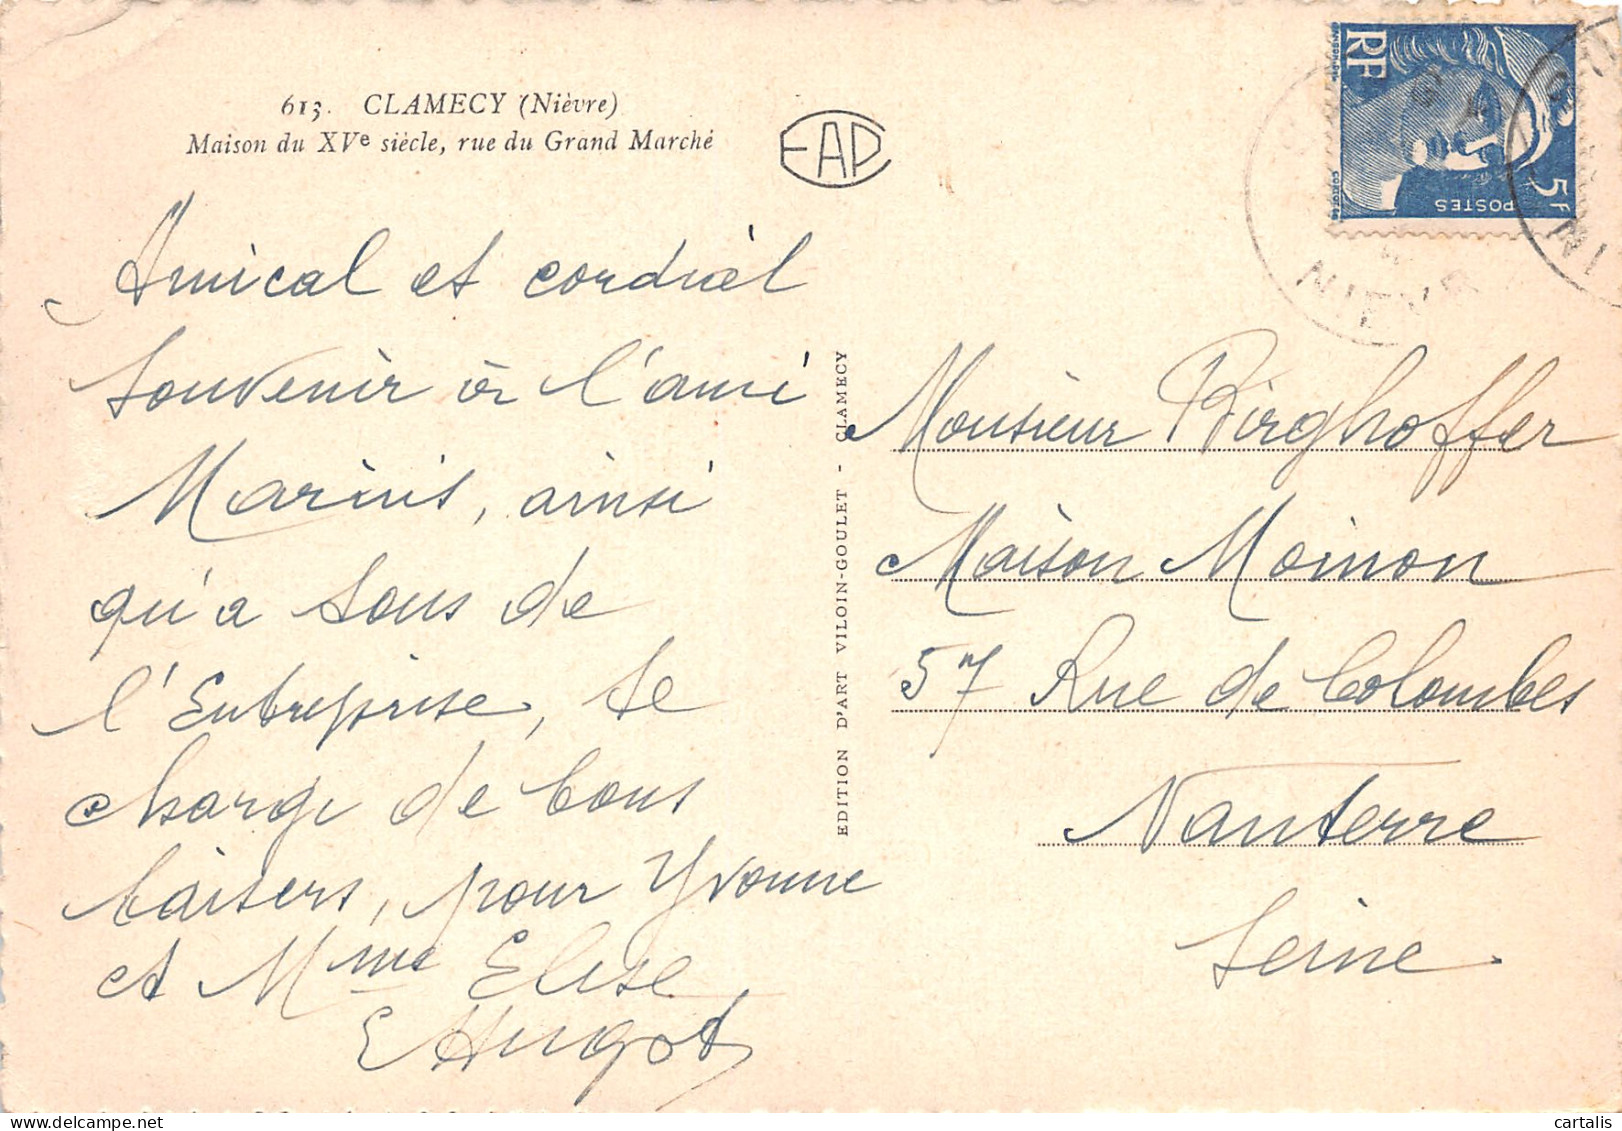 613. CLAMECY (Nièvre)
Maison du XVe siècle, rue du Grand Marché
EAP
RF
5F
POSTES
NIEVRE
NI
Amical et cordial
souvenir à l'ami
Marius, ainsi
qu'a sous de
l'Entreprise, te
charge de bons
baisers, pour Yvonne
et Mme Elise
E Hugot
EDITION D'ART VILOIN-GOULET - CLAMECY
Monsieur Birghoffer
Maison Moinon
57 Rue de Colombes
Nanterre
Seine.
www.delcampe.net
cartalis